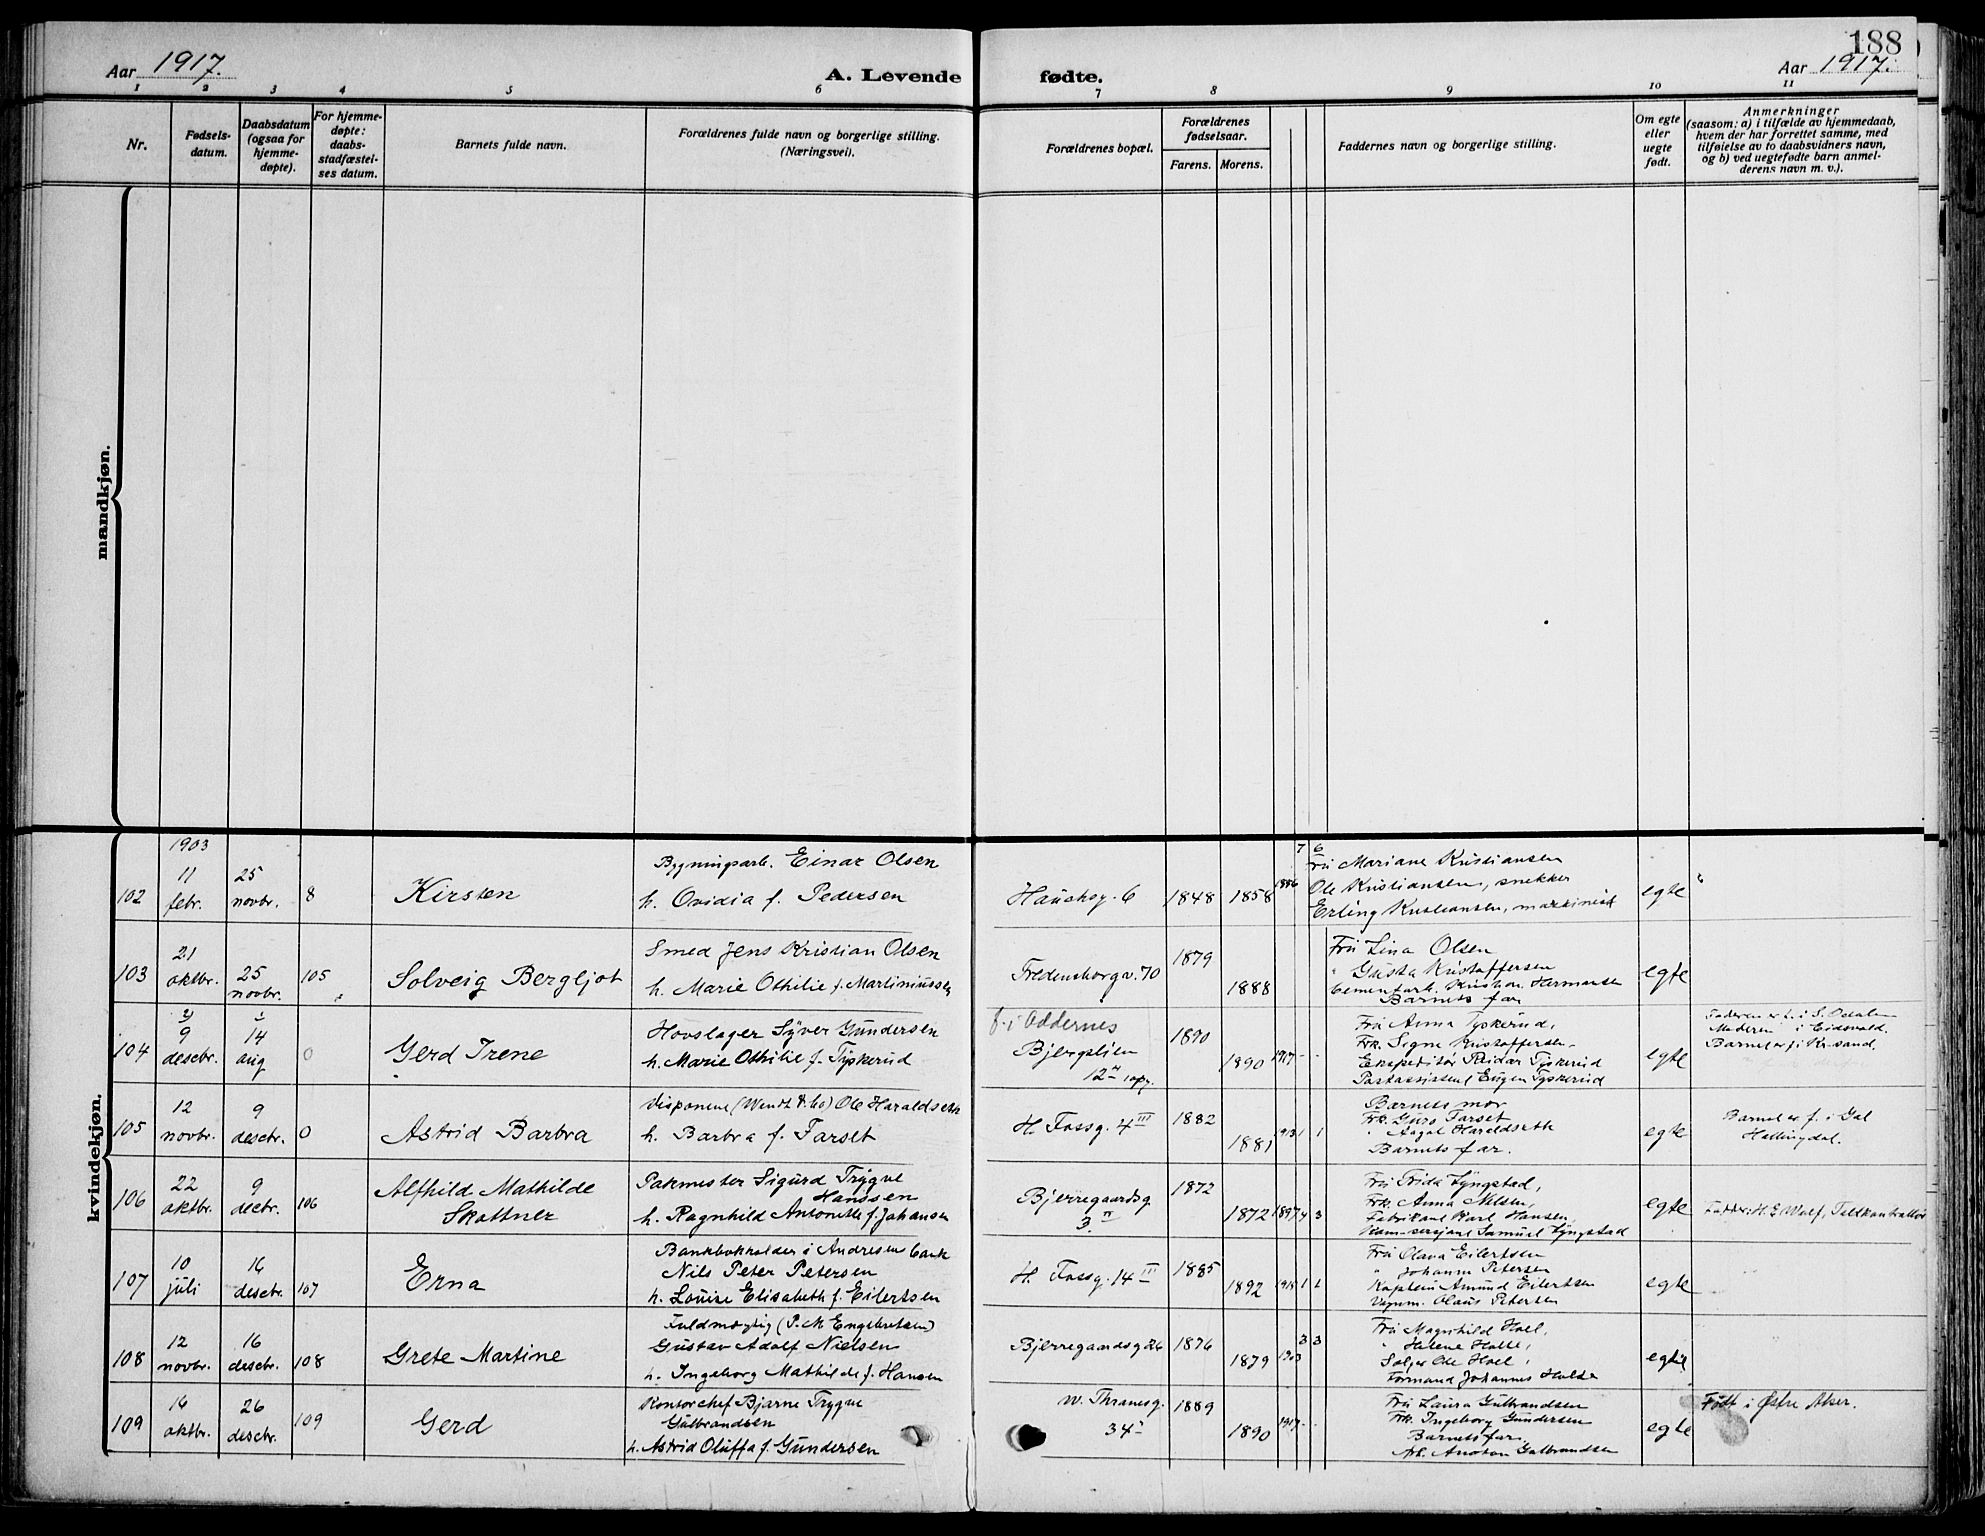 188
Aar 1917.
A. Levende fødte.
Aar 1917.
1 2 3 4 5 6 7 8 9 10 11
Nr.
Fødsels-
datum.
Daabsdatum
(ogsaa for
hjemme-
døpte).
For hjemme-
døpte:
daabs-
stadfæstel-
ses datum.
Barnets fulde navn.
Forældrenes fulde navn og borgerlige stilling.
(Næringsvei).
Forældrenes bopæl.
Forældrenes
fødselsaar.
Farens. Morens.
Faddernes navn og borgerlige stilling.
Om egte
eller
uegte
født.
Anmerkninger
(saasom: a) i tilfælde av hjemmedaab,
hvem der har forrettet samme, med
tilføielse av to daabsvidners navn,
og b) ved uegtefødte barn anmel-
derens navn m. v.).
mandkjøn.
kvindekjøn.
102
1903
11
febr.
25
novbr.
8
Kirsten
Bygningsarb. Einar Olsen
h. Ovidia f. Pedersen
Hauchsg. 6
1848
1858
1886
7 6
Fru Mariane Kristiansen
Ole Kristiansen, snekker
Erling Kristiansen, maskinist
egte
103
21
oktbr.
25
novbr.
105
Solveig Bergljot
Smed Jens Kristian Olsen
h. Marie Othilie f. Martiniussen
Fredensborgv. 70
1879
1888
Fru Lina Olsen
" Gusta Kristoffersen
Cementarb. Kristian Hermansen
Barnets far
egte
104
9
descbr.
14
aug
0
Gerd Irene
Hovslager Syver Gundersen
h. Marie Othilie f. Tyskerud
f. i Oddernes
Bjergslien
12
1890
1890
1917 - -
Fru Anna Tyskerud,
Frk. Signe Kristoffersen
Ekspeditør Reidar Tyskerud
Postassistent Eugen Tyskerud
egte
Faderen er f. i S. Odalen
Moderen " i Eidsvold.
Barnet er f. i Kr.sand.
105
12
novbr.
9
descbr.
0
Astrid Barbra
Disponent (Wendt & Co) Ole Haraldseth
h. Barbra f. Farset
H. Fossg. 4 III
1882
1881
1913 1 1
Barnets mor
Frk. Guro Farset
" Aagot Haraldseth
Barnets far.
egte
Barnet er f. i Gol
Hallingdal.
106
22
oktbr.
9
decbr.
106
Alfhild Mathilde
Skottner
Pakmester Sigurd Trygve
Hanssen
h. Ragnhild Antonette f. Johansen
Bjerregaardsg
3 II
1872
1872
1897 4 3
Fru Frida Lyngstad,
Frk. Anna Nilsen,
Fabrikant Karl Hansen
Kom-sersjant Samuel Lyngstad
egte
Fadder: H. E Wolf, Toldkontrollør
107
10
juli
16
descbr.
107
Erna
Bankbokholder i Andresens bank
Nils Peter Petersen
h. Louise Elisabeth f. Eilertsen
H. Fossg. 14 II
1885
1892
1915 1 1
Fru Olava Eilertsen
" Johanne Petersen
Kaptein Amund Eilertsen
Vognm. Olaus Petersen
egte
108
12
novbr.
16
descbr.
108
Grete Martine
Fuldmægtig (P. M Engebretsen)
Gustav Adolf Nielsen
h. Ingeborg Mathilde f. Hansen
Bjerregaardsg 26
1876
1879
1903 3 3
Fru Magnhild Hoel,
" Helene Holte,
Selger Ole Hoel,
Formand Johannes Holte
egte
109
16
oktbr.
26
descbr.
109
Gerd
Kontorchef Bjarne Trygve
Gulbrandsen
h. Astrid Oluffa f. Gundersen
W. Thranesg.
34 I
1889
1890
1917 - -
Fru Laura Gulbrandsen
Frk. Ingeborg Gundersen
Barnets far.
Arb. Anton Gulbrandsen
egte
Født i Østre Aker.